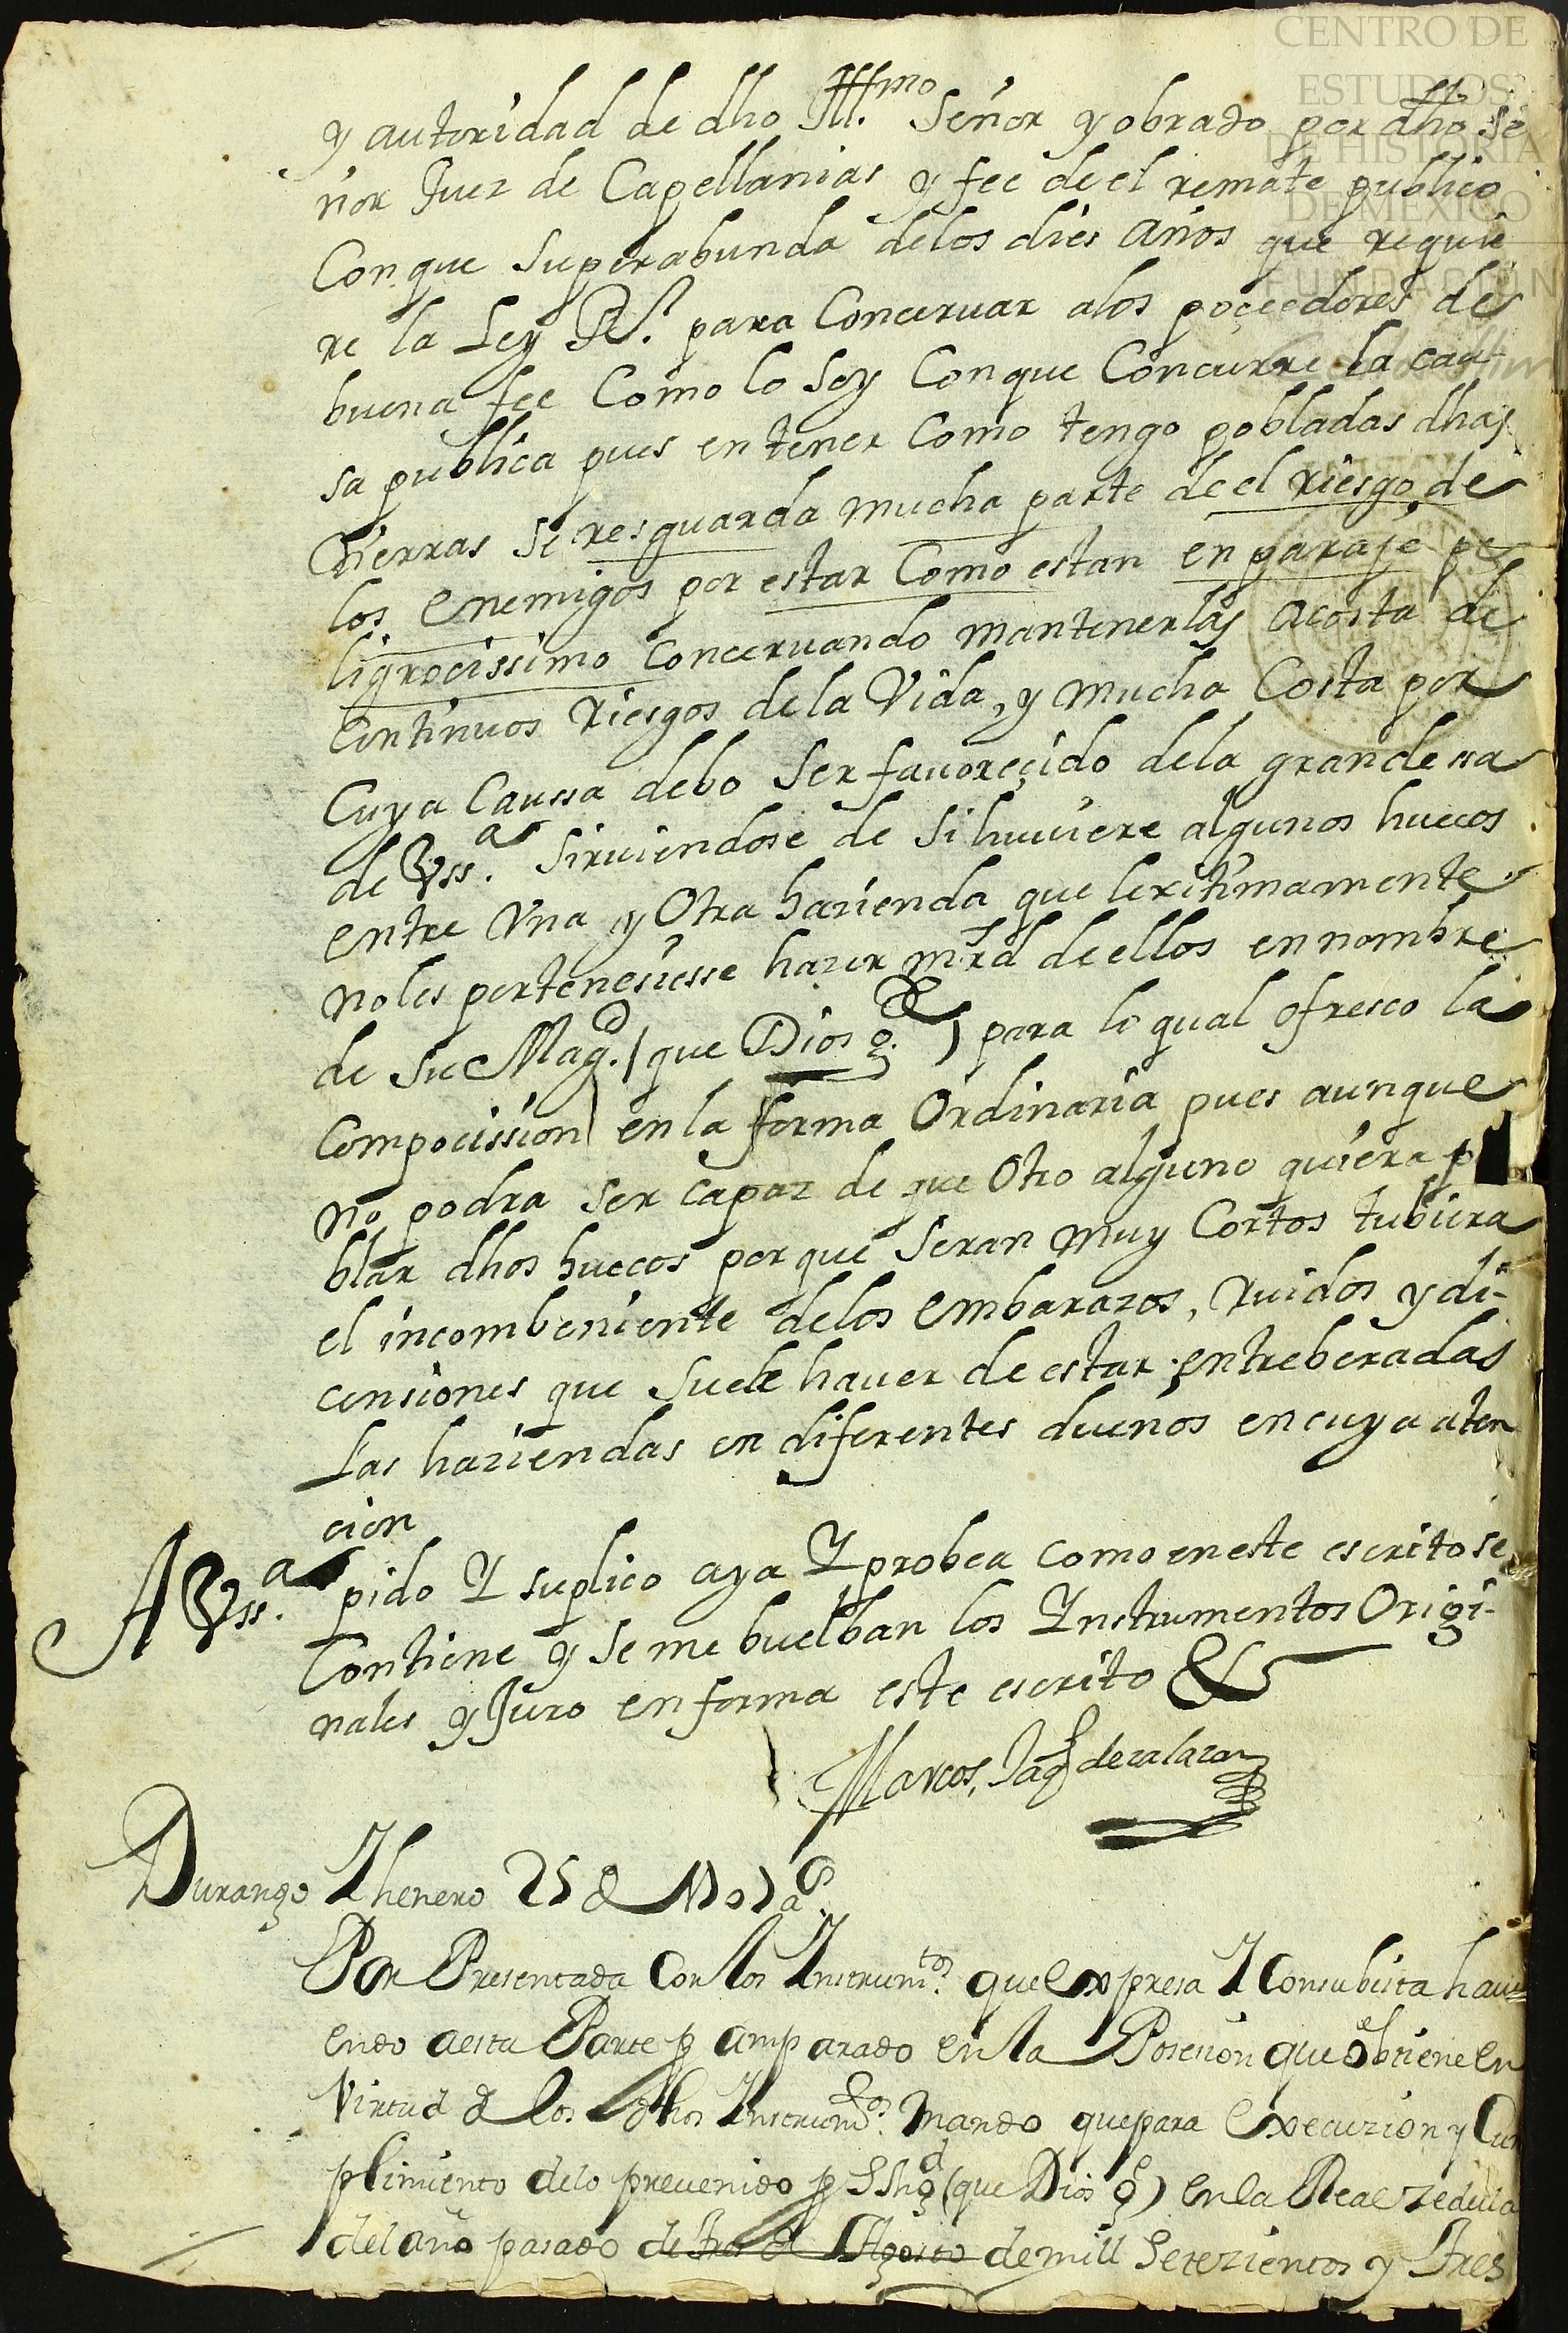 CENTRO DE
ESTUDIOS
DE HISTORIA
DE MEXICO
FUNDACIÓN
y autoridad de dho Ill.mo Señor y obrado por dho Se
ñor Juez de Capellanias y fee de el remate publico
Conque Superabunda delos dies años que requie
re la Ley Rl. para Concervar alos poçeedores de
buena fee Como lo Soy Conque Concurre la cau
sa publica pues en tener Como tengo pobladas dhas
tierras Se resguarda mucha parte de el riesgo de
los enemigos por estar Como estan en paraje pe
ligrocissimo concervando mantenerlas acosta de
Continuos riesgos dela Vida, y mucha Costa por
Cuya Caussa debo Ser favoreçido dela grandessa
de Vss.a Sirviendose de Si huviere algunos huecos
entre Una y Otra hazienda que lexitimamente
noles perteneciesse hazer mrd de ellos en nombre
de Su Mag.d (que Dios g.de) para lo qual ofresco la
Compocission en la forma Ordinaria pues aunque
no podra ser capaz de que Otro alguno quiera p
blar dhos huecos porque Seran muy Cortos tubiera
el incombeniente delos embarazos, ruidos y di-
censiones que Suele haver de estar entreberadas
Las haziendas en diferentes dueños en cuya aten
cion
A Vss.a pido Y suplico aya Y probea como en este escrito se
Contiene y Se me buelban los Ynstrumentos Origi-
nales y Juro en forma este escrito &
Marcos, de zalazar
Durango Yhenero 25 d
Por Presentada Con los Ynstrum.tos que expresa Y Con su bista havi
endo aesta Parte p amparado en la Posesion que obtiene en
Virtud d los dhos Ynstrum.tos Mando que para execuzion y Cum
plimiento delo prevenido p S Mgd (que Dios g.e) en la Real zedula
del año pasado de tres d Agosto de mill Setezientos y Tres